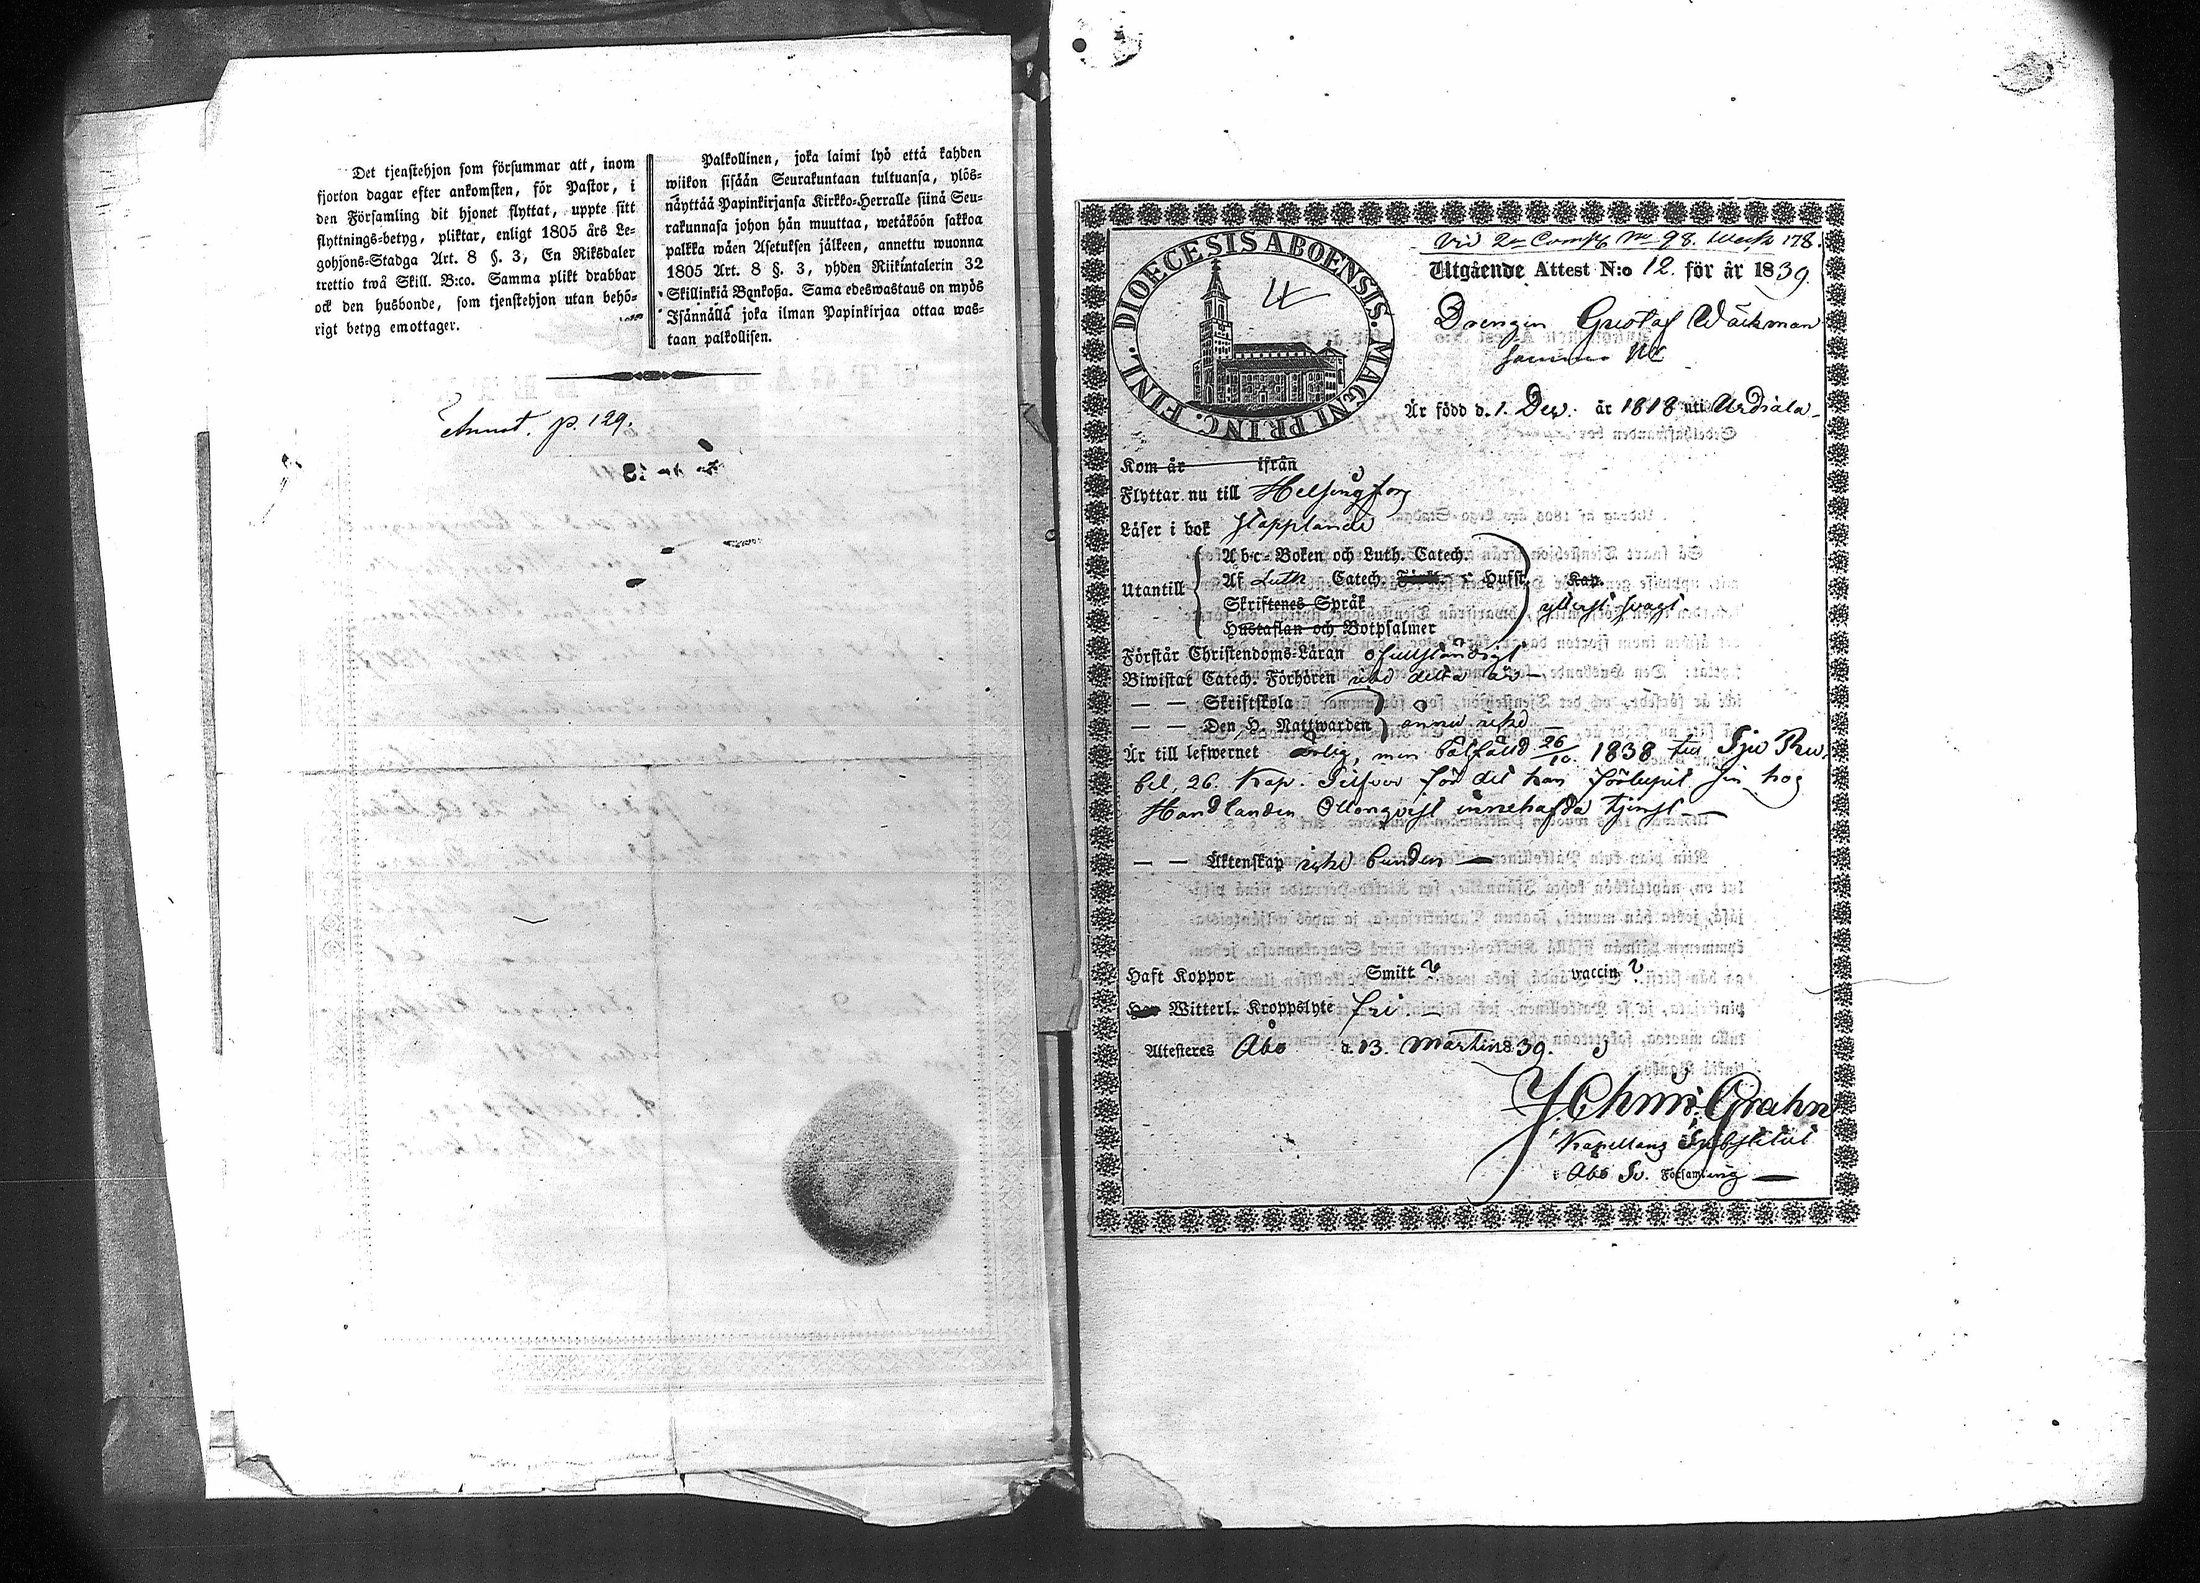 Det tjenstehjon som försummar att, inom
fjorton dagar efter ankomsten, för Pastor, i
den Församling dit hjonet flyttat, uppte sitt
flyttnings-betyg, pliktar, enligt 1805 års Le-
gohjons-Stadga Art. 8 §. 3, En Riksdaler
trettio twå Skill. B:co. Samma plikt drabbar
ock den husbonde, som tjenstehjon utan behö-
rigt betyg emottager.
Palkollinen, joka laimi lyö että kahden
wiikon sisään Seurakuntaan tultuansa, ylös-
näyttää Papinkirjansa Kirkko-Herralle siinä Seu-
rakunnasa johon hän muuttaa, wetäköön sakkoa
palkka wäen Asetuksen jälkeen, annettu wuonna
1805 Art. 8 §. 3, yhden Riikintalerin 32
Skillinkiä Bankoßa. Sama edeswastaus on myös
Isännällä joka ilman Papinkirjaa ottaa was-
taan palkollisen.
Annot. p. 129.
DIOECESIS ABOENSIS. MAGNI PRINC. FINL.
Vid 2n Comp. No 98. 178.
Utgående Attest N:o 12. för år 1839.
Drengen Gustaf Wäckman
Är född d. 1. Dec. år 1818 uti Urdiala
Kom år ifrån
Flyttar nu till Helsingfors
Läser i bok
Abc-Boken och Luth. Catech.
Utantill Af Luth Catech. Hufst. Kap.
Skriftenes Språk
Hustaflan och Botpsalmer
ytterst swagt
Förstår Christendoms-Läran ofullständigt
Biwistat Catech. Förhören icke detta år
— — Skriftskola
— — Den H. Nattwarden ännu icke
Är till lefwernet ärlig, men fälld 26/10 1838 till Sju Ru-
bel, 26. Kop. Silfwer för det han förlupit sin hos
Handlanden innehafda tjenst
— — Äktenskap icke bunden
Haft Koppor Smitt v vaccin v.
Har Witterl. Kroppslyte fri
Attesteres Åbo d. 13. Martii 1839.
Grahn
Kapellans Substitut
i Åbo Sv. Församling